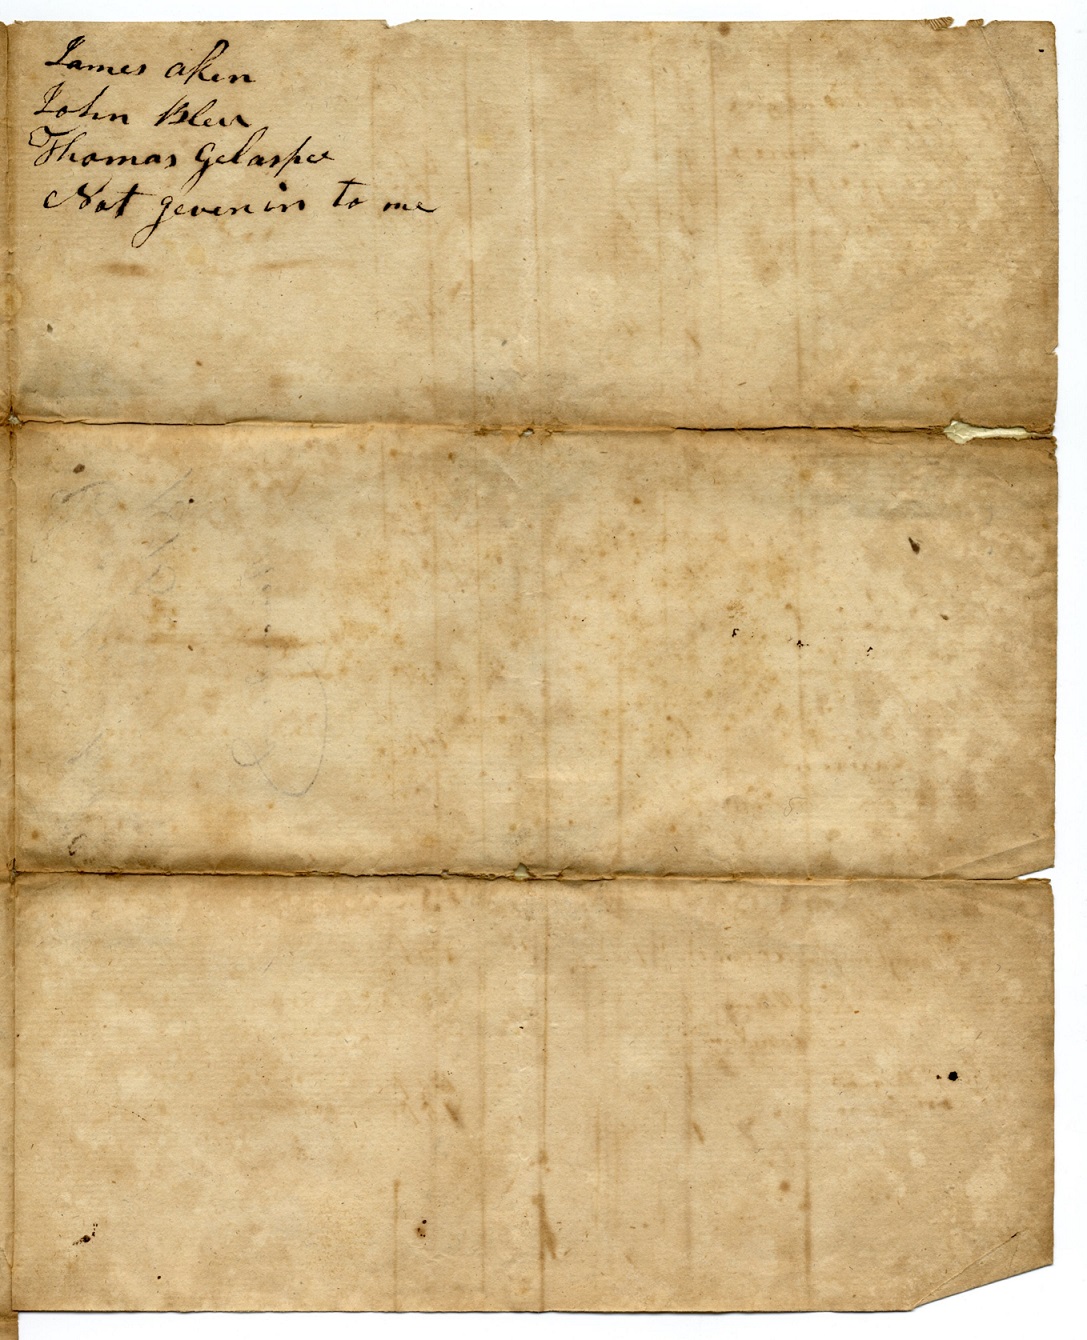 James aken
John Bler
Thomas Gelaspee
Not geven in to me